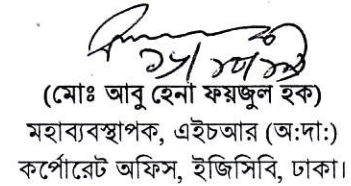 (মোঃ আবু হেনা ফয়জুল হক)
মহাব্যবস্থাপক, এইচআর (অ:দা:)
কর্পোরেট অফিস, ইজিসিবি, ঢাকা।